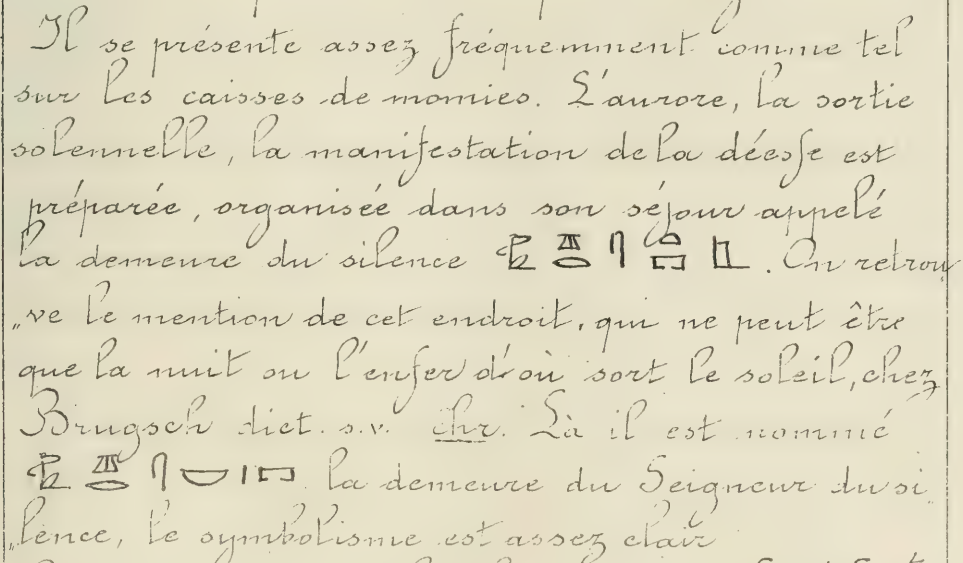 Il se présente assez fréquemment comme tel
sur les caisses de momies. L'aurore, la sortie
solennelle, la manifestation de la déesse est
préparée, organisée dans son séjour appelé
la demeure du silence . On retrou
„ve le mention de cet endroit, qui ne peut être
que la nuit ou l'enfer d'où sort le soleil, chez
Brugsch dict. s.v. chr. Là il est nommé
la demeure du Seigneur du si
„lence, le symbolisme est assez clair